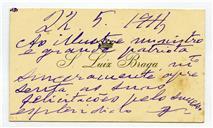 22. 5. 1914
Ao illustre ministro
e grande patriota
S. Luiz Braga
sinceramente apre
senta as suas
felicitações pelo
esplendido